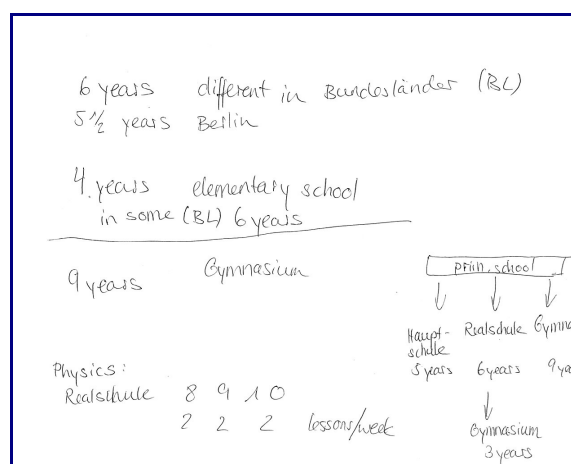 6 years different in Bundesländer (BL)
5 1/2 years Berlin
4. years elementary school
in some (BL) 6 years
9 years Gymnasium
prim. school
Haupt- Realschule Gymna
schule
5 years 6 years 9 yea
Gymnasium
3 years
Physics:
Realschule 8 9 10
2 2 2 lessons/week